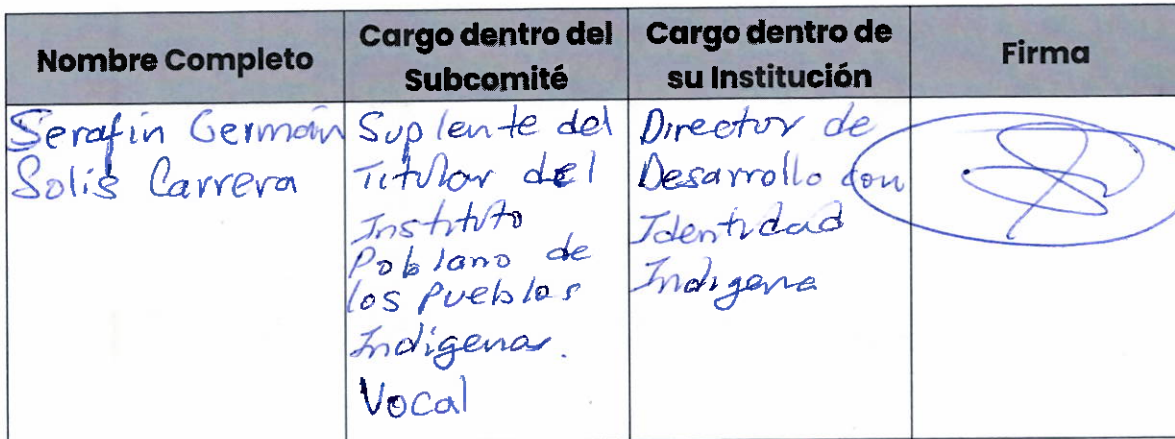 Nombre Completo
Cargo dentro del
Subcomité
Cargo dentro de
su Institución
Firma
Serafin Germán
Solis Carrera
Suplente del
Titular del
Instituto
Poblano de
los Pueblos
Indígenas.
Vocal
Director de
Desarrollo con
Identidad
Indigena